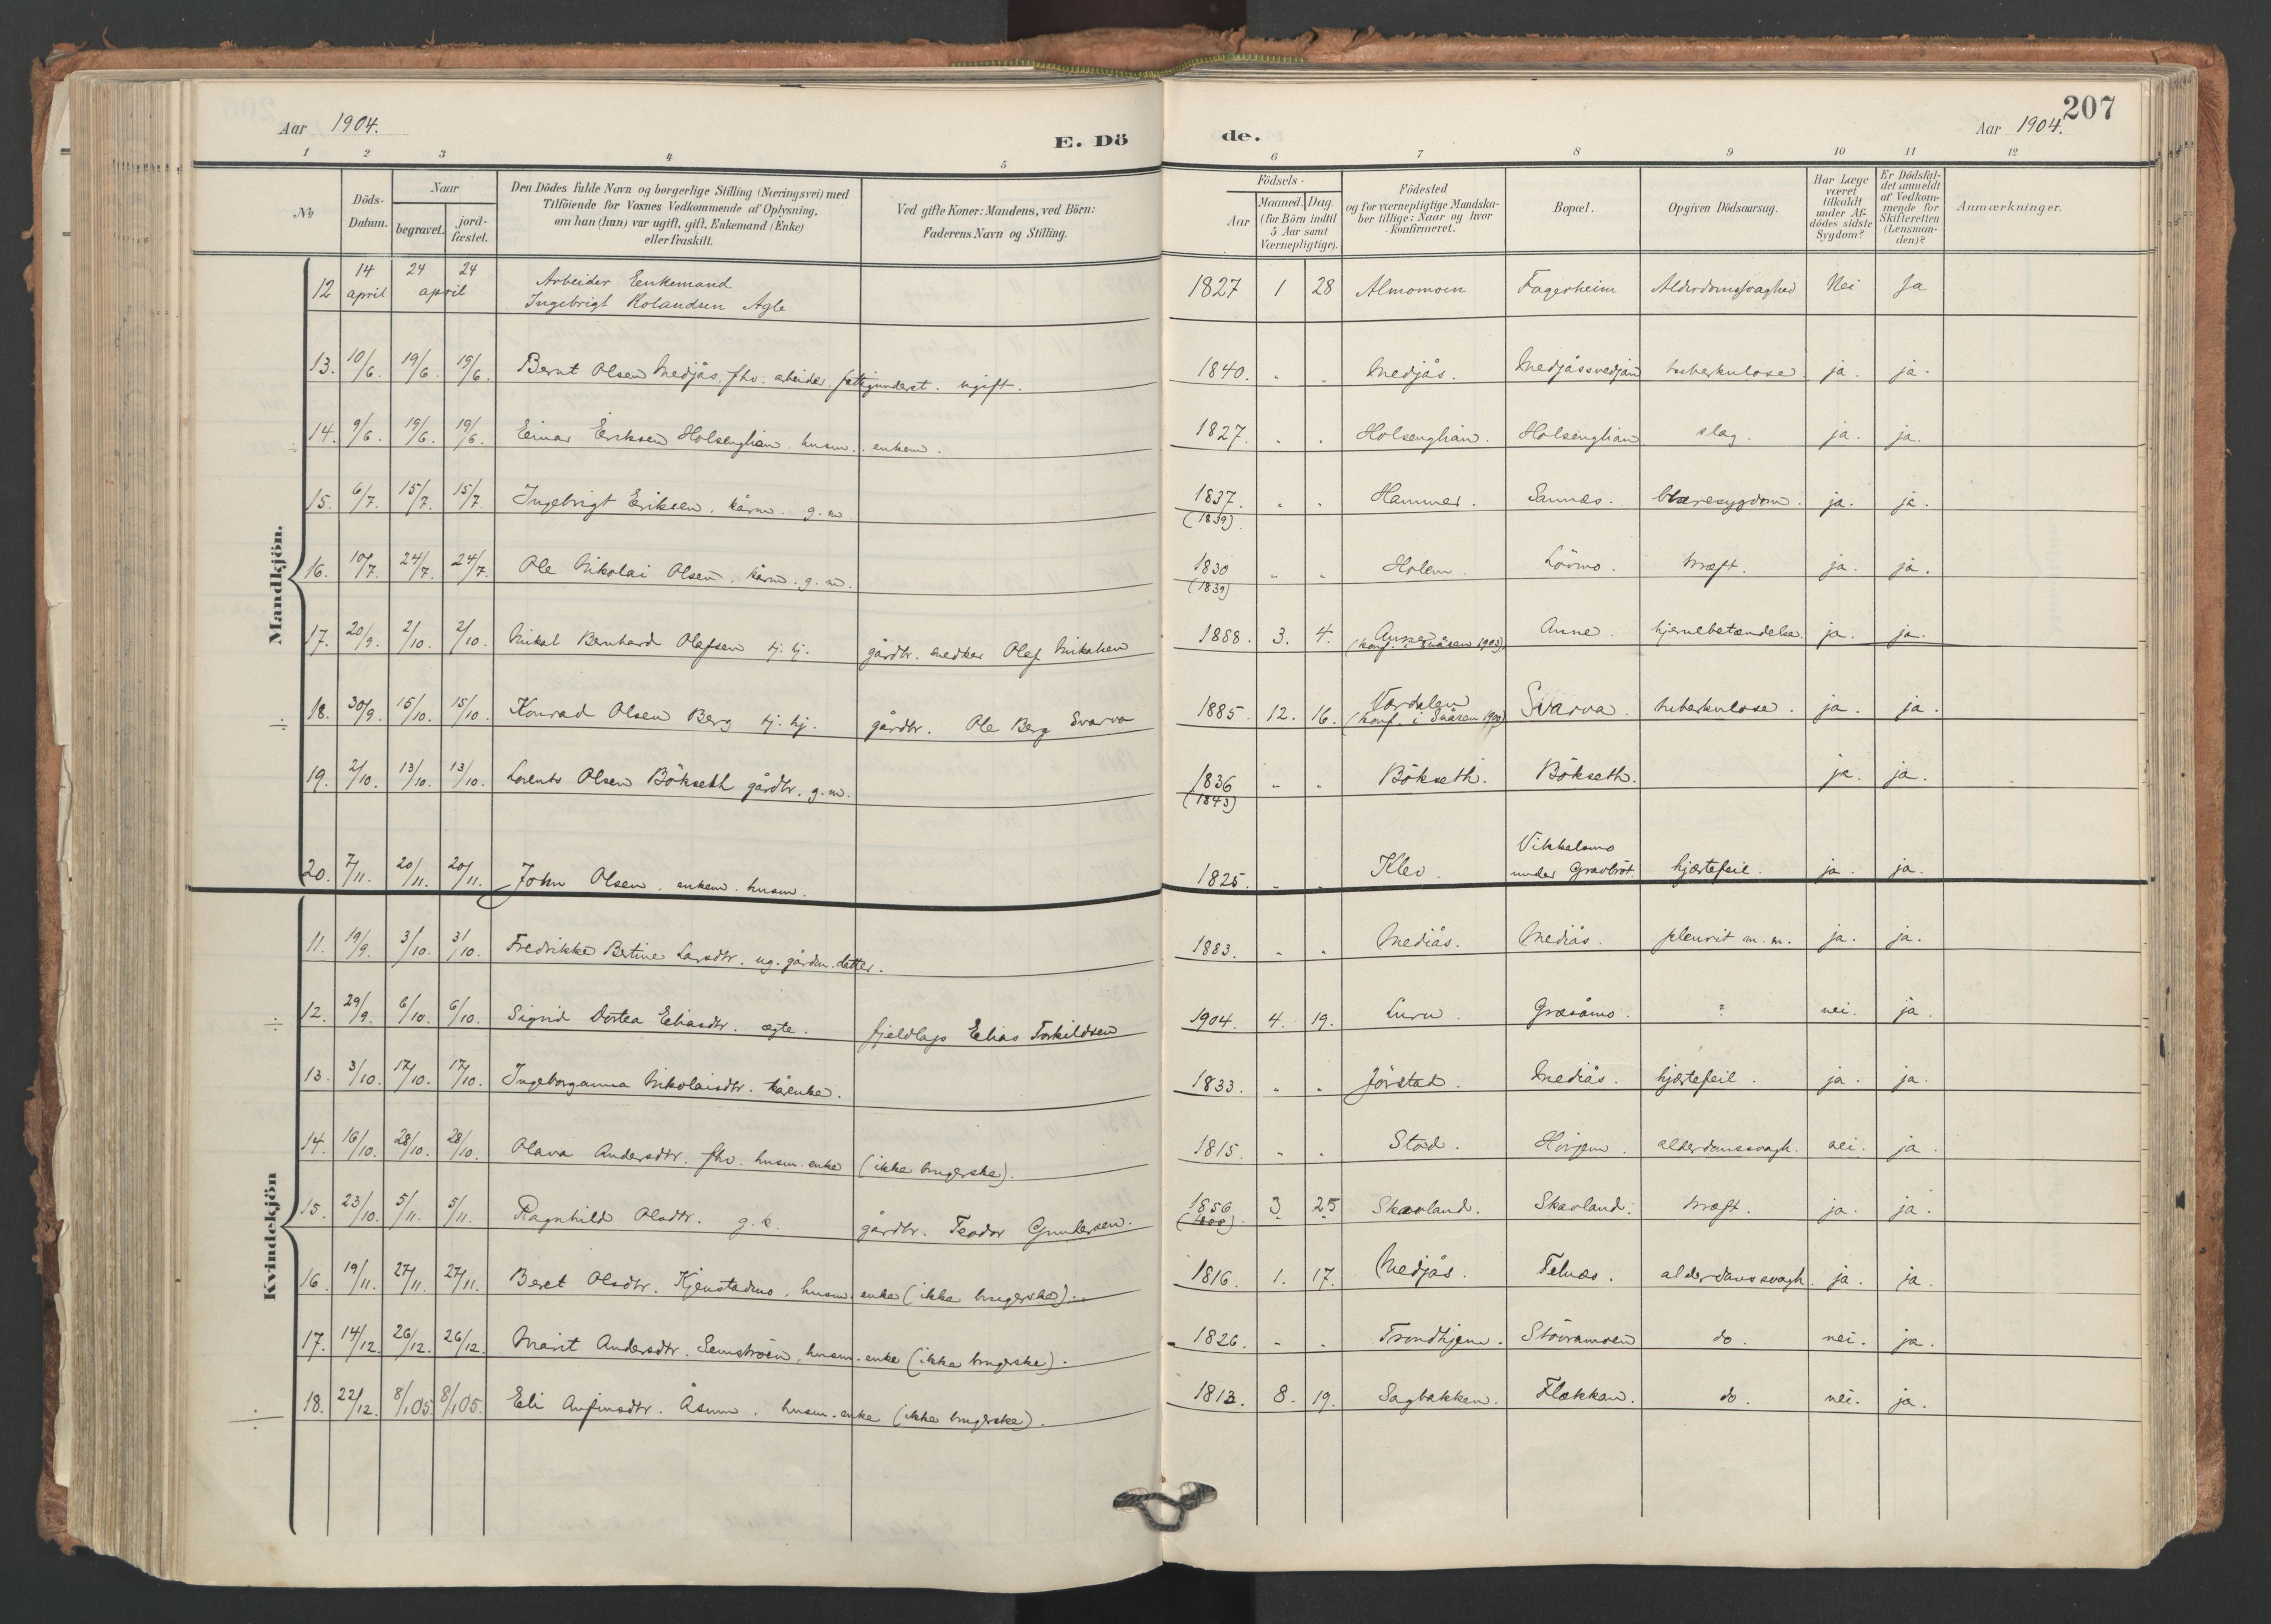 Aar 1904.
E. Dö
de.
Aar 1904.
207
1 2 3 4 5 6 7 8 9 10 11 12
№
Döds-Datum.
Naar
begravet.
jord-fæstet.
Den Dödes fulde Navn og borgerlige Stilling (Næringsvei) med
Tilföiende for Voxnes Vedkommende af Oplysning,
om han (hun) var ugift, gift, Enkemand (Enke)
eller fraskilt.
Ved gifte Koner: Mandens, ved Börn:
Faderens Navn og Stilling.
Födsels-
Aar
Maaned. Dag.
(for Börn indtil
5 Aar samt
Værnepligtige).
Födested
og for værnepligtige Mandska-
ber tillige: Naar og hvor
Konfirmeret.
Bopæl.
Opgiven Dödsaarsag.
Har Læge
været
tilkaldt
under Af-
dödes sidste
Sygdom?
Er Dödsfal-
det anmeldt
af Vedkom-
mende for
Skifteretten
(Lensman-
den)?
Anmærkninger.
Mandkjön.
12 14 april 24 24 april Arbeider Enkemand
Ingebrigt Rolandsen Agle 1827 1 28 Almomoen Fagerheim Alderdomssvaghed Nei Ja
13. 10/6. 19/6. 19/6. Bernt Olsen Medjås, fhv. arbeider, fattigunderst. ugift. 1840. " " Medjås. Medjåsvedjan tuberkulose. ja. ja.
14. 9/6. 19/6. 19/6. Einar Eriksen Holsenglian. husm. enkem. 1827. " " Holsenglian. Holsenglian slag. ja. ja.
15. 6/7. 15/7. 15/7. Ingebrigt Eriksen, kårm. g. m. 1837. (1839) " " Hammer. Sannæs. blæresygdom. ja. ja.
16. 10/7. 24/7. 24/7. Ole Nikolai Olsen, kårm. g. m. 1830 (1839) " " Holem. Lövmo. kræft. ja. ja.
17. 20/9. 2/10. 2/10. Mikal Bernhard Olafsen tj. hj. gårdbr. snedker Olaf Mikalsen 1888. 3. 4. Aune (konf. i Snåsen 1903) Aune. hjernebetændelse. ja. ja.
18. 30/9. 15/10. 15/10. Konrad Olsen Berg tj. hj. gårdbr. Ole Berg Svarva 1885. 12. 16. Værdalen (konf. i Snåsen 1900) Svarva. tuberkulose. ja. ja.
19. 2/10. 13/10. 13/10. Lorents Olsen Bökseth gårdbr. g. m. 1836 (1843) " " Bökseth. Bökseth. ja. ja.
20. 7/11. 20/11. 20/11. John Olsen, enkem. husm. 1825. " " Klev. Vikkelsmo under Gravbröt hjertefeil. ja. ja.
Kvindekjön
11. 19/9. 3/10. 3/10. Fredrikke Bertine Larsdtr. ug. gårdm. datter. 1883. " " Mediås. Mediås. pleurit m. m. ja. ja.
12. 29/9. 6/10. 6/10. Sigrid Dortea Eliasdtr. ægte. fjeldlap Elias Torkildsen 1904. 4. 19. Luru. Gråsåmo. ? nei. ja.
13. 3/10. 17/10. 17/10. Ingeborganna Nikolaisdtr. kårenke. 1833. " " Jörstad. Mediås. hjertefeil. ja. ja.
14. 16/10. 28/10. 28/10. Olava Andersdtr. fhv. husm. enke (ikke brugerske). 1815. " " Stod. alderdomssvagh. nei. ja.
15. 23/10. 5/11. 5/11. Ragnhild Olsdtr. g. k. gårdbr. Teodor Gundersen. 1856 3 25 Skavland. Skavland. kræft. ja. ja.
16. 19/11. 27/11. 27/11. Beret Olsdtr. Kjenstadmo, husm. enke (ikke brugerske). 1816. 1. 17. Medjås. Felnæs. alderdomssvagh. ja. ja.
17. 14/12. 26/12. 26/12. Marit Andersdtr. Semströen, husm. enke (ikke brugerske). 1826. " " Trondhjem. Stövramoen do. nei. ja.
18. 22/12. 8/1 05. 8/1 05. Eli Anfinsdtr. Åsum. husm. enke (ikke brugerske). 1813. 8. 19. Sagbakken. Flakkan. do. nei. ja.